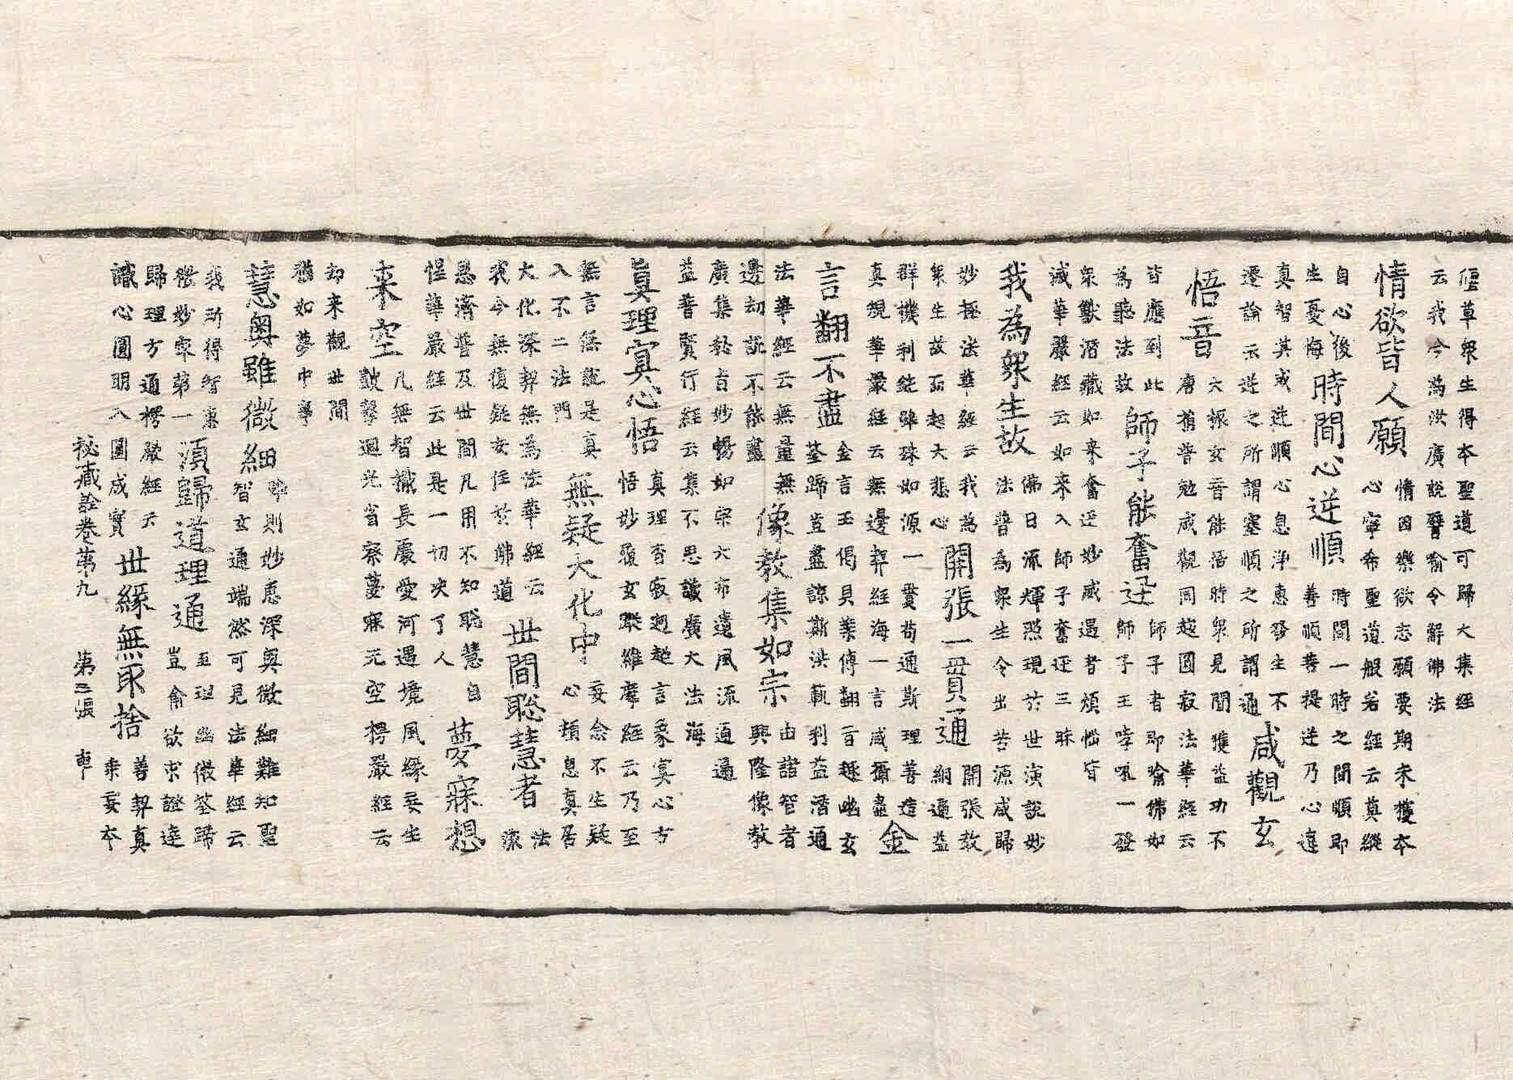 偃草衆生得本聖道可歸大集經
云我今為汝廣說譬喻令解佛法
情欲皆人願
情因樂欲志願要期未獲本
心寧希聖道般若經云真縱
自心後
生憂悔
時間心逆順
時間一時之間順即
善順菩提逆乃心違
真智其或逆順心息淨惠發生不
遷論示逆之所謂塞順之所謂通
咸觀玄
悟音
大振玄音能悟時衆見聞獲益功不
唐捐普勉咸觀同趣圓寂法華經云
皆應到此
為聽法故
師子能奮迅
師子者即喻佛如
師子王哮吼一發
衆獸潛藏如来奮迅妙威遇者煩惱皆
滅華嚴經云如来入師子奮迅三昧
我為衆生故
佛日流輝照現於世演說妙
法普為衆生令出苦源咸歸
妙極法華經云我為
衆生故而起大悲心
開張一貫通
開張教
網通益
群機利鈍雖殊如源一貫苟通斯理善達
真規華嚴經云無邊契經海一言咸演盡
金
言翻不盡
金言玉偈貝葉傳翻百趣幽玄
荃蹄豈盡諒斯洪軌利益潛通
法華經云無量無
邊劫說不能盡
像教集如宗
由諸智者
興隆像教
廣集秘旨妙暢如宗大布遺風流通遍
益普賢行經云集不思議廣大法海
真理寘心悟
真理杳寂趣言象寘心方
悟妙玄蹤維摩經云乃至
無言無說是真
入不二法門
無疑大化中
妄念不生疑
心頓息真居
大化深契無為法華經云
我今無復疑安住於佛道
世間聡慧者
法
流
恩濟普及世間凡用不知聡慧自
惺華嚴經云此是一切决了人
夢寐想
来空
凡無智識長處愛河遇境風緣妄生
皷擊迴光省察夢寐元空楞嚴經云
却来觀世間
猶如夢中事
慧奥雖微細
則妙惠深奥微細難知聖
智玄通端然可見法華經云
我所得智慧
微妙最第一
須歸道理通
至理幽微荃蹄
豈喻欲求證達
歸理方通楞嚴經云
識心圓明入圓成實
世緣無取捨
善契真
乘妄本
秘藏詮卷第九　第二張